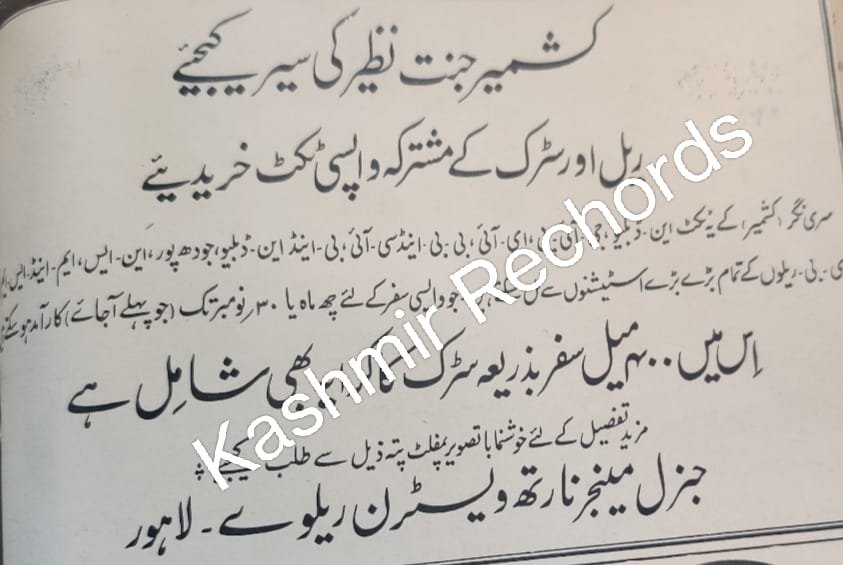 کشمیر جنت نظیر کی سیر کیجئے
ریل اور سڑک کے مشترکہ واپسی ٹکٹ خریدیئے
سری نگر (کشمیر) کے یہ ٹکٹ این۔ڈبلیو، جی۔آئی۔پی، ای۔آئی، بی۔بی۔اینڈ سی۔آئی، بی۔اینڈ این۔ڈبلیو، جودھپور، این۔ایس، ایم۔اینڈ۔ایس۔ایم
ی۔بی۔ریلوں کے تمام بڑے بڑے اسٹیشنوں سے مل سکتے ہیں جو واپسی سفر کے لئے چھ ماہ یا ۳۰؍نومبر تک (جو پہلے آجائے) کارآمد ہو سکتے
اِس میں ۴۰۰ میل سفر بذریعہ سڑک کا کرایہ بھی شامل ہے
مزید تفصیل کے لئے خوشنما باتصویر پمفلٹ پتہ ذیل سے طلب کیجئے
جنرل مینجر نارتھ ویسٹرن ریلوے۔ لاہور
Kashmir Rechords